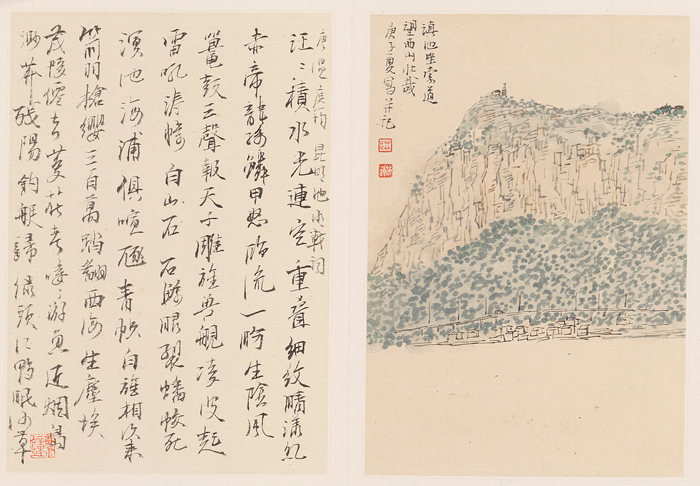 滇池坐索道
望西山壯哉
庚子夏寫并記
唐溫庭筠 昆明池水戰詞
汪々積水光連空重疊細紋晴漾紅
赤帝龍孫鱗甲怒臨流一盼生陰風
鼉鼓三聲報天子雕旌獸艦凌波起
雷吼濤驚白山石石鯨眼裂蟠蛟死
溟池海浦俱喧豗青幟白旌相次來
箭羽槍纓三百萬踏翻西海生塵埃
茂陵僊去菱花老唼々游魚近烟島
渺莽殘陽釣艇歸綠頭江鴨眠沙草